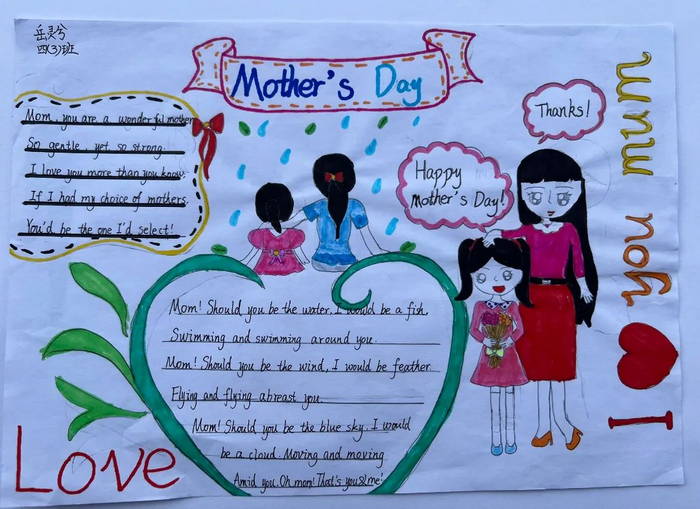 岳灵兮
四(3)班
Mother's Day
Mom, you are a wonderful mother
So gentle, yet so strong.
I love you more than you know.
If I had my choice of mothers.
You'd be the one I'd select!
Happy
Mother's Day!
Thanks!
I ♥ you mum
Mom! Should you be the water, I would be a fish,
Swimming and swimming around you.
Mom! Should you be the wind, I would be feather
Flying and flying abreast you
Mom! Should you be the blue sky, I would
be a cloud. Moving and moving
Amid you. Oh mom! That's you & me!
Love